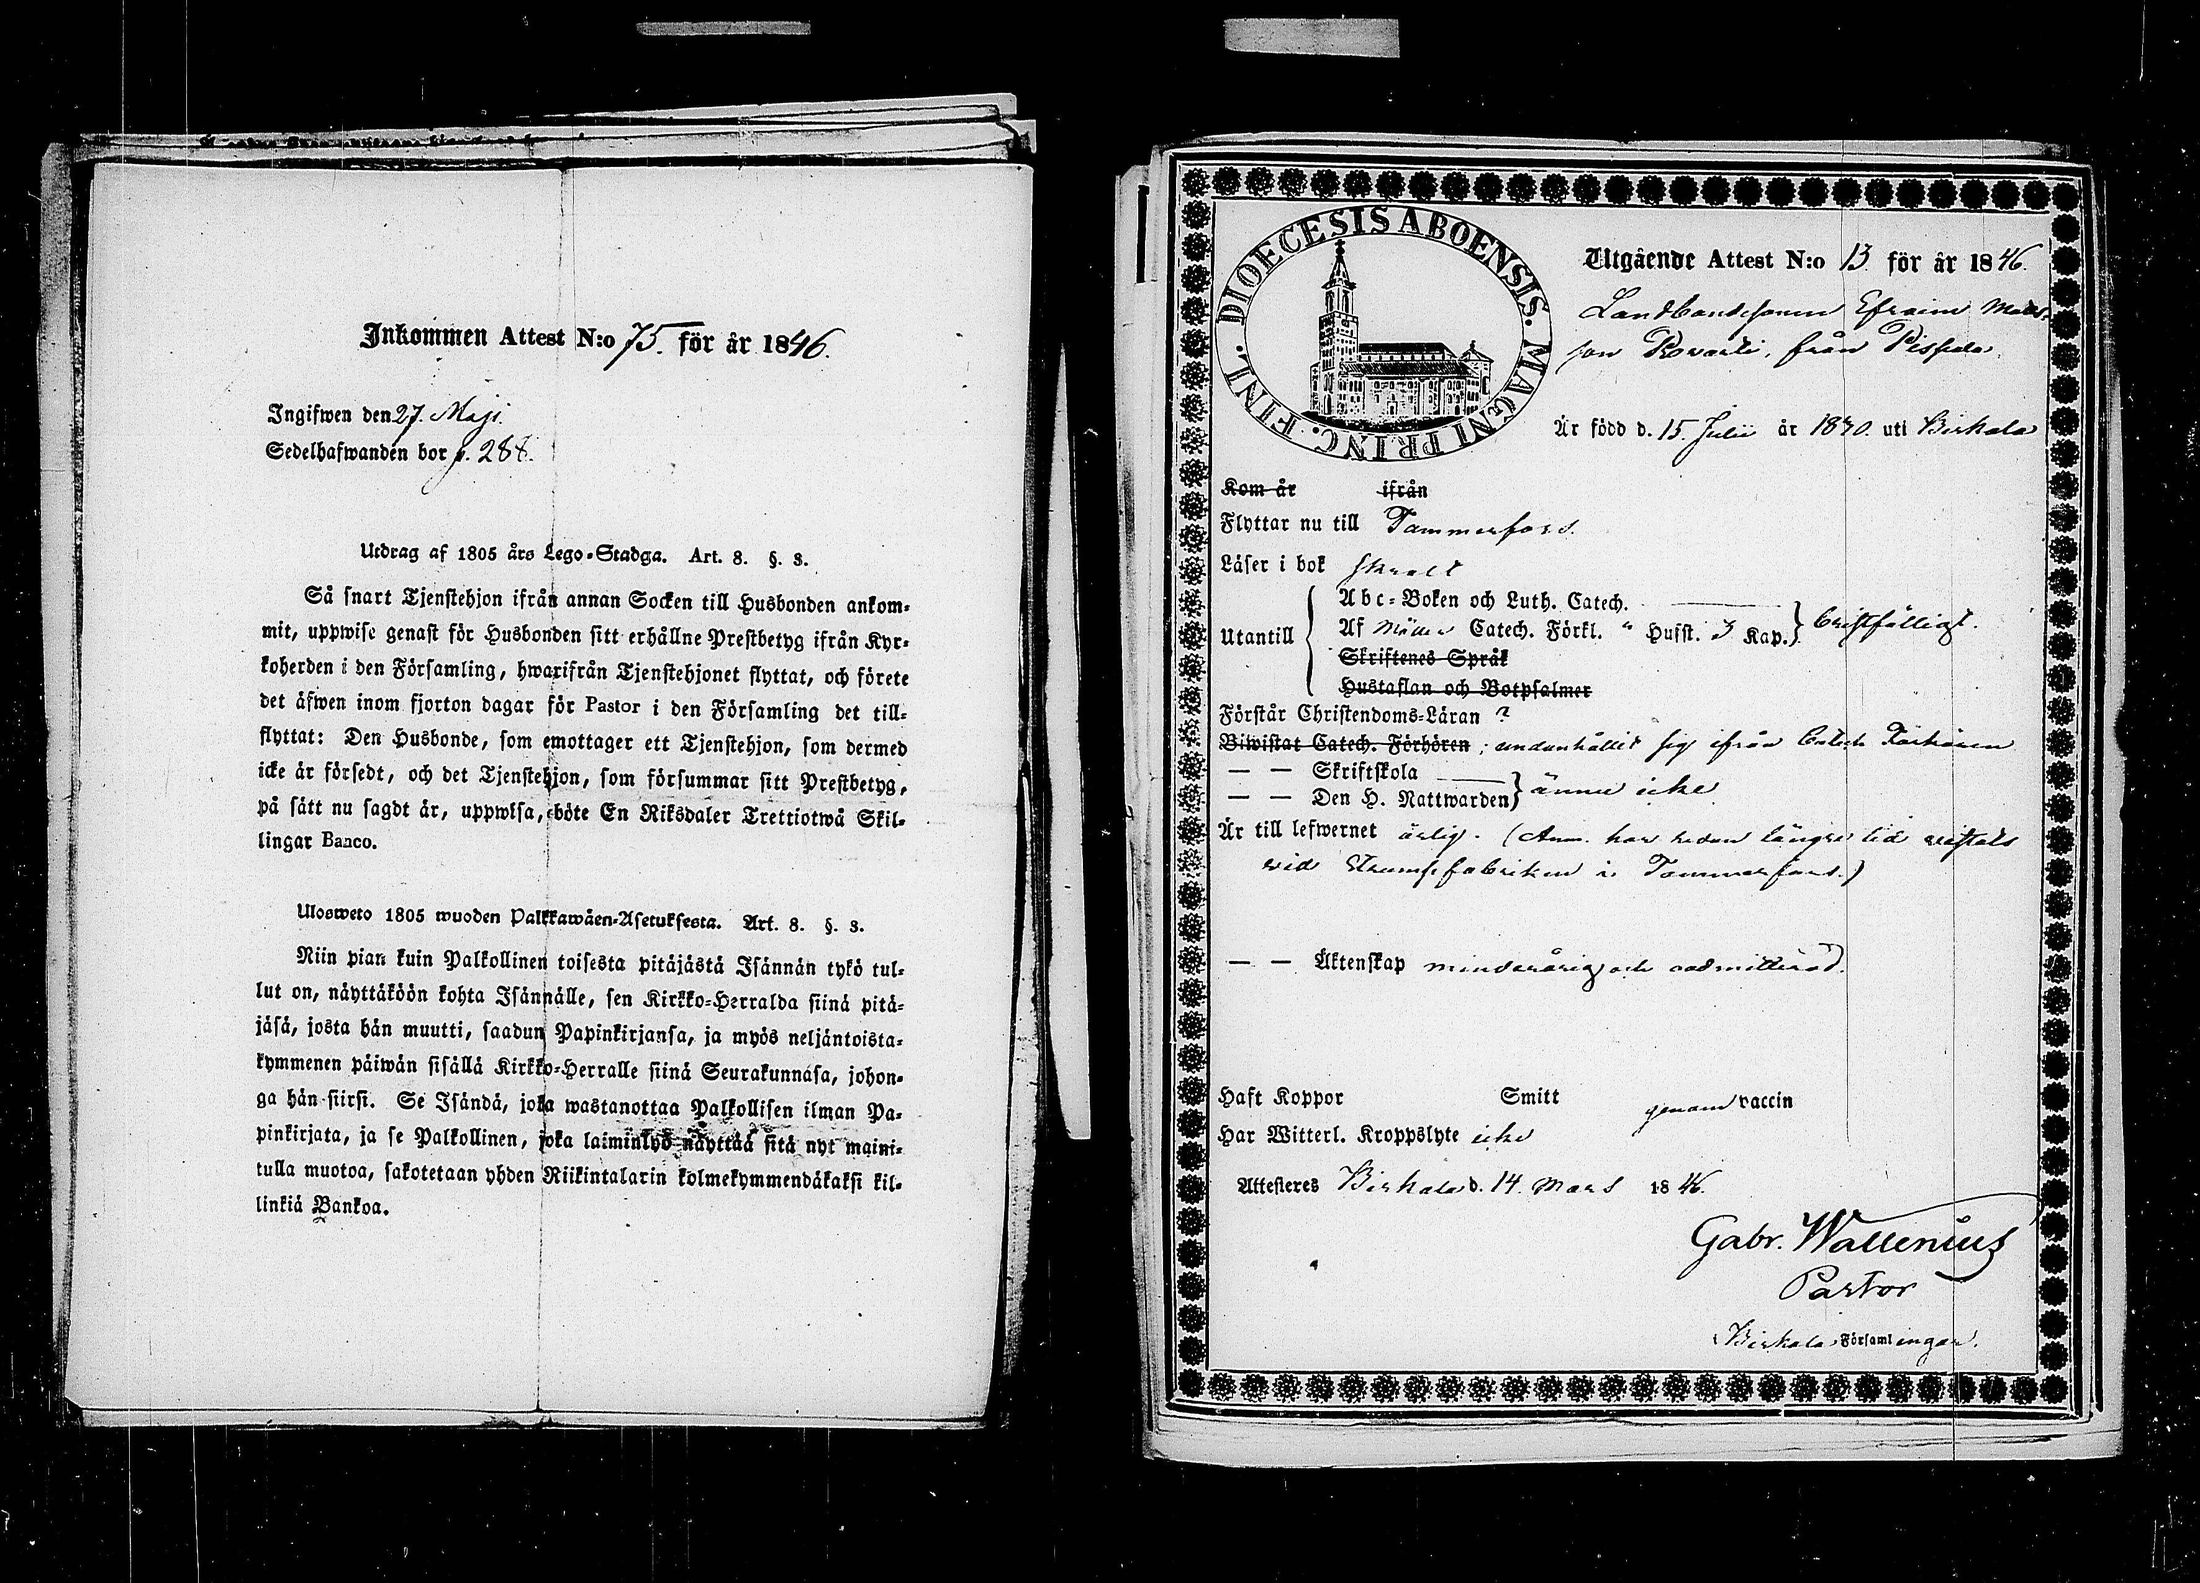 Inkommen Attest N:o 75. för år 1846.
Ingifwen den 27. Maji.
Sedelhafwanden bor p. 288.
Utdrag af 1805 års Lego-Stadga. Art. 8. §. 3.
Så snart Tjenstehjon ifrån annan Socken till Husbonden ankom-
mit, uppwise genast för Husbonden sitt erhållne Prestbetyg ifrån Kyr-
koherden i den Församling, hwarifrån Tjenstehjonet flyttat, och förete
det äfwen inom fjorton dagar för Pastor i den Församling det till-
flyttat: Den Husbonde, som emottager ett Tjenstehjon, som dermed
icke är försedt, och det Tjenstehjon, som försummar sitt Prestbetyg,
på sätt nu sagdt är, uppwisa, böte En Riksdaler Trettiotwå Skil-
lingar Banco.
Ulosweto 1805 wuoden Palkkawäen-Asetuksesta. Art. 8. §. 3.
Niin pian kuin Palkollinen toisesta pitäjästä Isännän tykö tul-
lut on, näyttäköön kohta Isännälle, sen Kirkko-Herralda siinä pitä-
jäsä, josta hän muutti, saadun Papinkirjansa, ja myös neljäntoista-
kymmenen päiwän sisällä Kirkko-Herralle siinä Seurakunnasa, johon-
ga hän siirsi. Se Isändä, joka wastanottaa Palkollisen ilman Pa-
pinkirjata, ja se Palkollinen, joka laiminlyö näyttää sitä nyt maini-
tulla muotoa, sakotetaan yhden Riikintalarin kolmekymmendäkaksi kil-
linkiä Bankoa.
DIOECESIS ABOENSIS. MAGNI PRINC. FINL.
Utgående Attest N:o 13 för år 1846.
Landbondesonen Efraim Mats-
son Rovasti, från Pispala,
Är född d. 15. Julii år 1830. uti Birkala
Kom år ifrån
Flyttar nu till Tammerfors.
Läser i bok svalt
Utantill
Abc-Boken och Luth. Catech.
Af Möllers Catech. Förkl. " Husst. 3 Kap. bristfälligt.
Skriftenes Språk
Hustaflan och Botpsalmer
Förstår Christendoms-Läran ?
Biwistat Catech. Förhören ; undanhållit sig ifrån Catech Förhören
— — Skriftskola
— — Den H. Nattwarden ännu icke
Är till lefwernet ärlig. (Anm. har redan längre tid vistats
vid Strumpfabriken i Tammerfors.)
— — Äktenskap minderårig och oadmitterad.
Haft Koppor Smitt genom vaccin
Har Witterl. Kroppslyte icke
Attesteres Birkala d. 14. Mars 1846.
Gabr. Wallenius
Pastor
i Birkala Församlingar.